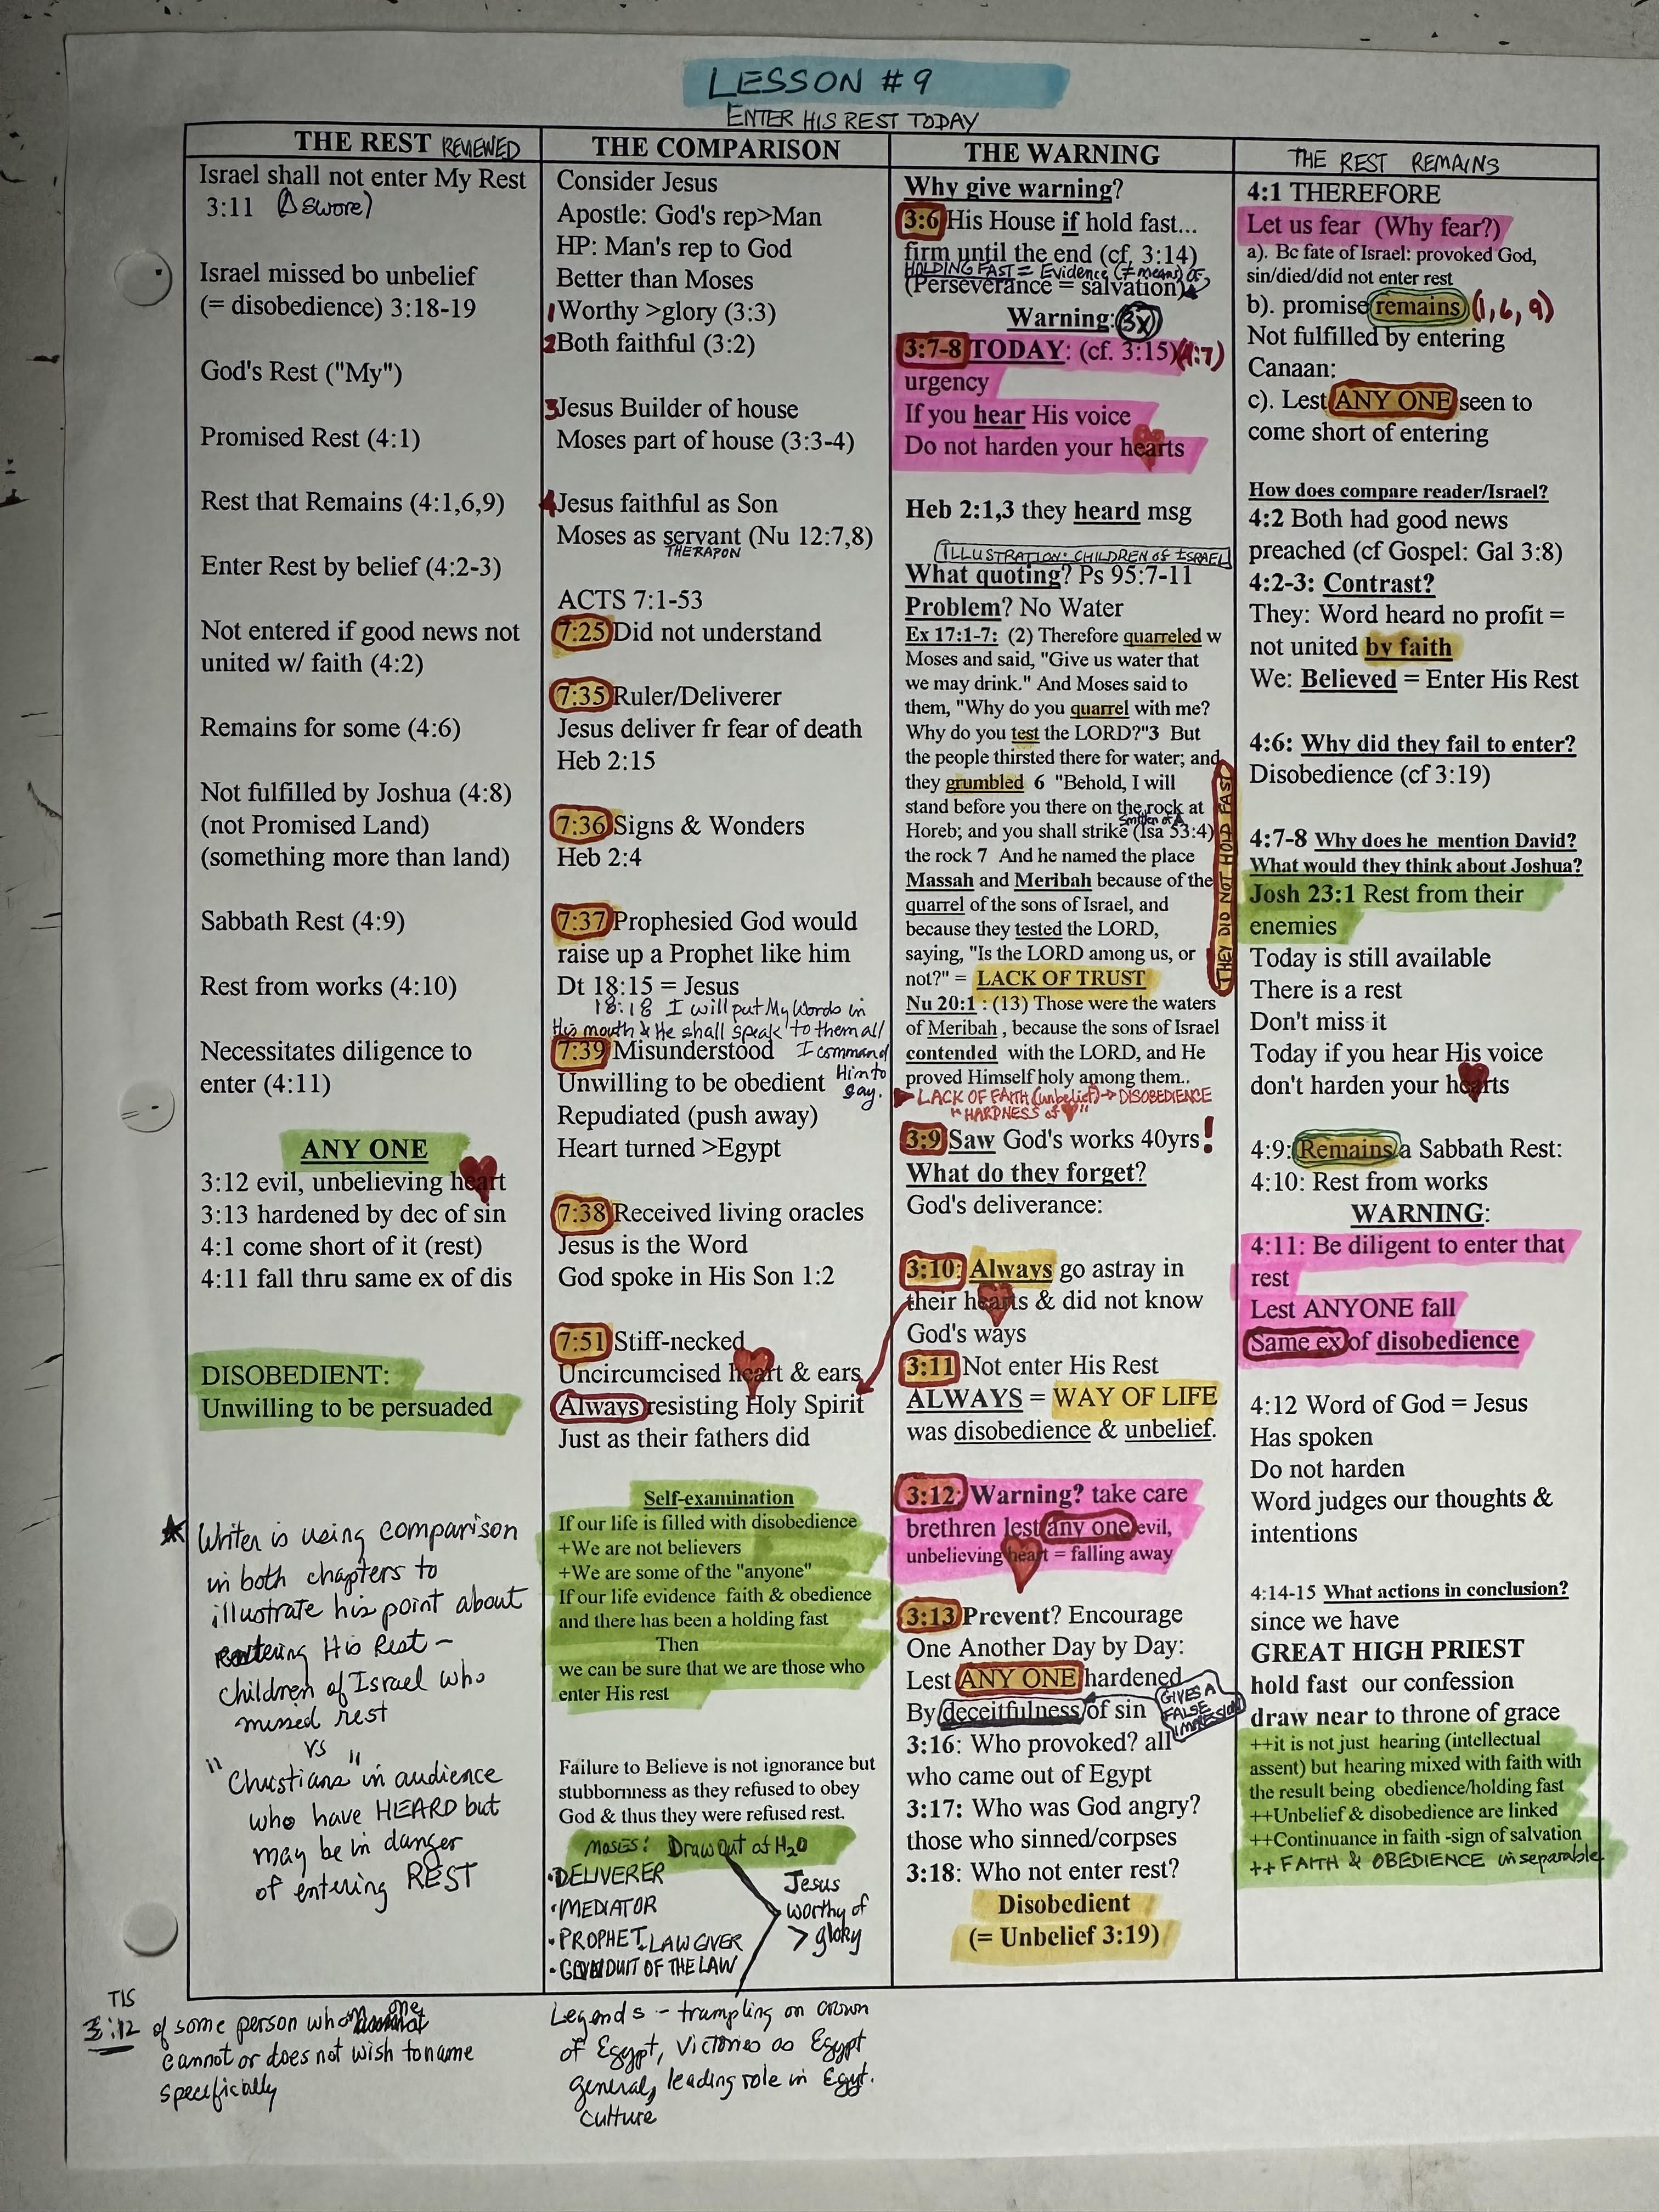 LESSON #9
ENTER HIS REST TODAY
THE REST REVIEWED
Israel shall not enter My Rest
3:11 (△ swore)
Israel missed bo unbelief
(= disobedience) 3:18-19
God's Rest ("My")
Promised Rest (4:1)
Rest that Remains (4:1,6,9)
Enter Rest by belief (4:2-3)
Not entered if good news not
united w/ faith (4:2)
Remains for some (4:6)
Not fulfilled by Joshua (4:8)
(not Promised Land)
(something more than land)
Sabbath Rest (4:9)
Rest from works (4:10)
Necessitates diligence to
enter (4:11)
ANY ONE
3:12 evil, unbelieving heart
3:13 hardened by dec of sin
4:1 come short of it (rest)
4:11 fall thru same ex of dis
DISOBEDIENT:
Unwilling to be persuaded
Writer is using comparison
in both chapters to
illustrate his point about
entering His Rest –
children of Israel who
missed rest
vs
"Christians" in audience
who have HEARD but
may be in danger
of entering REST
TIS
3:12 of some person who one
cannot or does not wish to name
specifically
THE COMPARISON
Consider Jesus
Apostle: God's rep>Man
HP: Man's rep to God
Better than Moses
1 Worthy >glory (3:3)
2 Both faithful (3:2)
3 Jesus Builder of house
Moses part of house (3:3-4)
4 Jesus faithful as Son
Moses as servant (Nu 12:7,8)
THERAPON
ACTS 7:1-53
7:25 Did not understand
7:35 Ruler/Deliverer
Jesus deliver fr fear of death
Heb 2:15
7:36 Signs & Wonders
Heb 2:4
7:37 Prophesied God would
raise up a Prophet like him
Dt 18:15 = Jesus
18:18 I will put My Words in
His mouth & He shall speak to them all
I command
Him to
say.
7:39 Misunderstood
Unwilling to be obedient
Repudiated (push away)
Heart turned >Egypt
7:38 Received living oracles
Jesus is the Word
God spoke in His Son 1:2
7:51 Stiff-necked
Uncircumcised heart & ears
Always resisting Holy Spirit
Just as their fathers did
Self-examination
If our life is filled with disobedience
+We are not believers
+We are some of the "anyone"
If our life evidence faith & obedience
and there has been a holding fast
Then
we can be sure that we are those who
enter His rest
Failure to Believe is not ignorance but
stubbornness as they refused to obey
God & thus they were refused rest.
MOSES: Draw out of H2O
·DELIVERER
·MEDIATOR
·PROPHET, LAW GIVER
·CONDUIT OF THE LAW
Jesus
worthy of
> glory
Legends – trampling on crown
of Egypt, victories as Egypt
general, leading role in Egyt.
culture
THE WARNING
Why give warning?
3:6 His House if hold fast...
firm until the end (cf, 3:14)
HOLDING FAST = Evidence (≠ means) of
(Perseverance = salvation)
Warning: 3x
3:7-8 TODAY: (cf. 3:15) (4:7)
urgency
If you hear His voice
Do not harden your hearts
Heb 2:1,3 they heard msg
ILLUSTRATION: CHILDREN OF ISRAEL
What quoting? Ps 95:7-11
Problem? No Water
Ex 17:1-7: (2) Therefore quarreled w
Moses and said, "Give us water that
we may drink." And Moses said to
them, "Why do you quarrel with me?
Why do you test the LORD?"3 But
the people thirsted there for water; and
they grumbled 6 "Behold, I will
stand before you there on the rock at
Smitten of
Horeb; and you shall strike (Isa 53:4)
the rock 7 And he named the place
Massah and Meribah because of the
quarrel of the sons of Israel, and
because they tested the LORD,
saying, "Is the LORD among us, or
not?" = LACK OF TRUST
THEY DID NOT HOLD FAST
Nu 20:1 : (13) Those were the waters
of Meribah , because the sons of Israel
contended with the LORD, and He
proved Himself holy among them..
LACK OF FAITH (unbelief) → DISOBEDIENCE
"HARDNESS of ♥"
3:9 Saw God's works 40yrs!
What do they forget?
God's deliverance:
3:10: Always go astray in
their hearts & did not know
God's ways
3:11 Not enter His Rest
ALWAYS = WAY OF LIFE
was disobedience & unbelief.
3:12: Warning? take care
brethren lest any one evil,
unbelieving heart = falling away
3:13 Prevent? Encourage
One Another Day by Day:
Lest ANY ONE hardened
By deceitfulness of sin
GIVES A
FALSE
IMPRESSION
3:16: Who provoked? all
who came out of Egypt
3:17: Who was God angry?
those who sinned/corpses
3:18: Who not enter rest?
Disobedient
(= Unbelief 3:19)
THE REST REMAINS
4:1 THEREFORE
Let us fear (Why fear?)
a). Bc fate of Israel: provoked God,
sin/died/did not enter rest
b). promise remains (1,6,9)
Not fulfilled by entering
Canaan:
c). Lest ANY ONE seen to
come short of entering
How does compare reader/Israel?
4:2 Both had good news
preached (cf Gospel: Gal 3:8)
4:2-3: Contrast?
They: Word heard no profit =
not united by faith
We: Believed = Enter His Rest
4:6: Why did they fail to enter?
Disobedience (cf 3:19)
4:7-8 Why does he mention David?
What would they think about Joshua?
Josh 23:1 Rest from their
enemies
Today is still available
There is a rest
Don't miss it
Today if you hear His voice
don't harden your hearts
4:9: Remains a Sabbath Rest:
4:10: Rest from works
WARNING:
4:11: Be diligent to enter that
rest
Lest ANYONE fall
Same ex of disobedience
4:12 Word of God = Jesus
Has spoken
Do not harden
Word judges our thoughts &
intentions
4:14-15 What actions in conclusion?
since we have
GREAT HIGH PRIEST
hold fast our confession
draw near to throne of grace
++it is not just hearing (intellectual
assent) but hearing mixed with faith with
the result being obedience/holding fast
++Unbelief & disobedience are linked
++Continuance in faith -sign of salvation
++ FAITH & OBEDIENCE inseparable